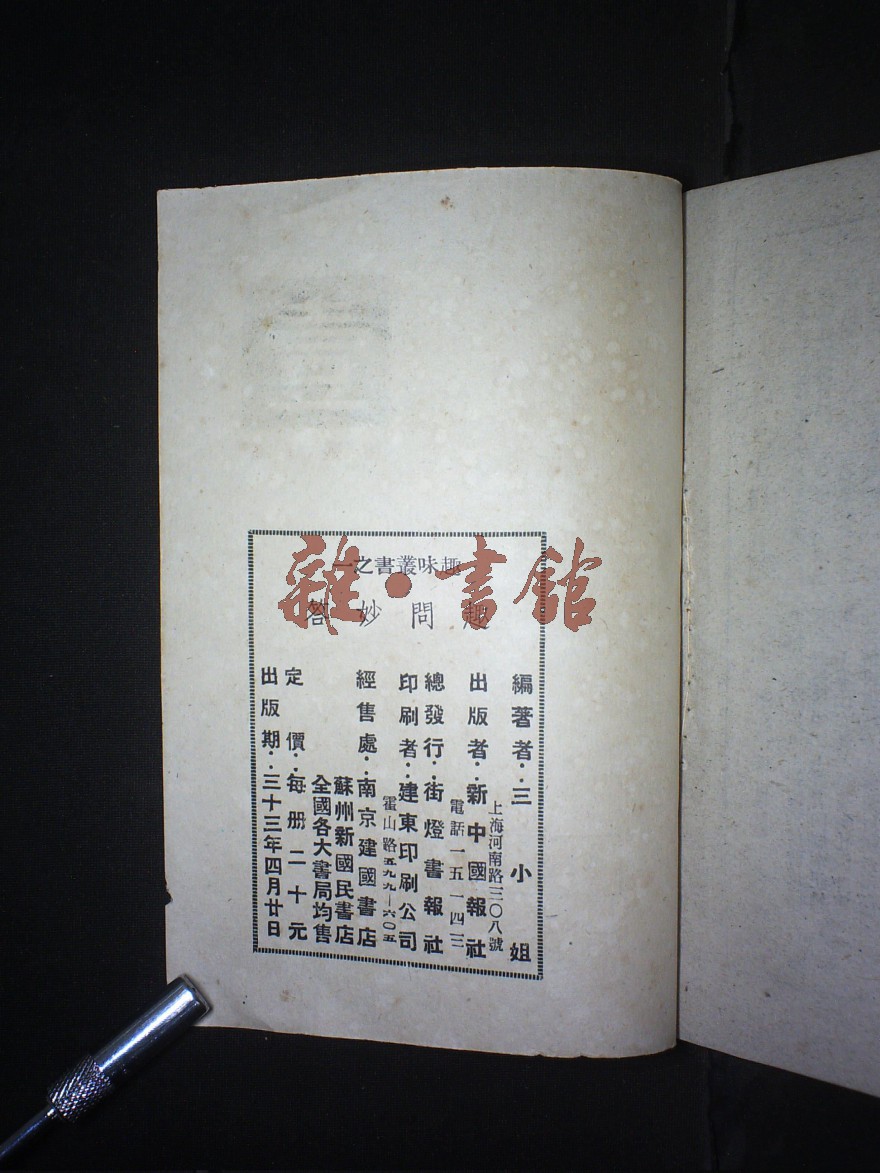 趣味叢書之一
趣問妙答
編著者：三小姐
上海河南路三〇八號
出版者：新中國報社
電話一五一四三
總發行：街燈書報社
印刷者：建東印刷公司
霍山路五九九—六〇五
經售處：南京建國書店
蘇州新國民書店
全國各大書局均售
定價：每册二十元
出版期：三十三年四月廿日
雜·書館